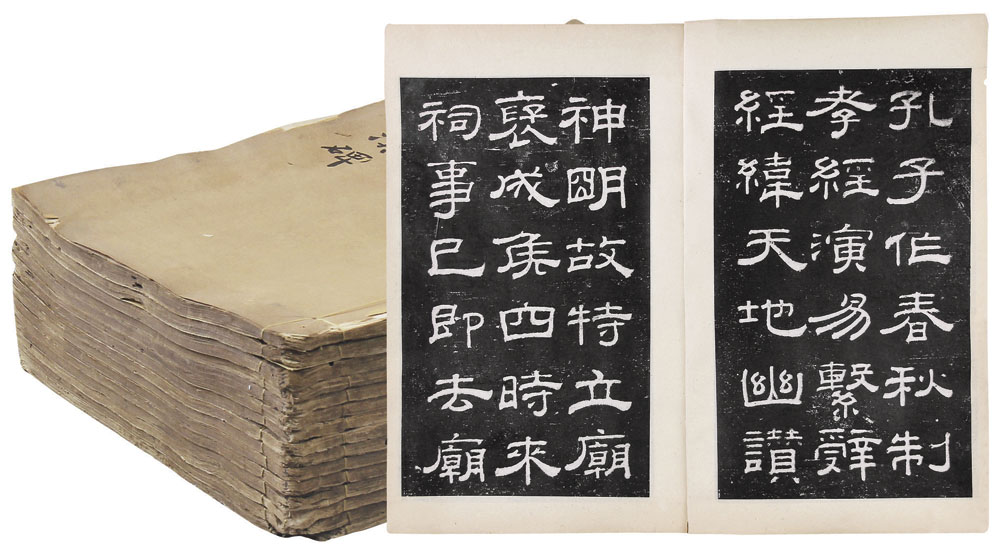 孔子作春秋制
孝經演易繫辭
經緯天地幽讚
神明故特立廟
褒成侯四時來
祠事已即去廟
碑